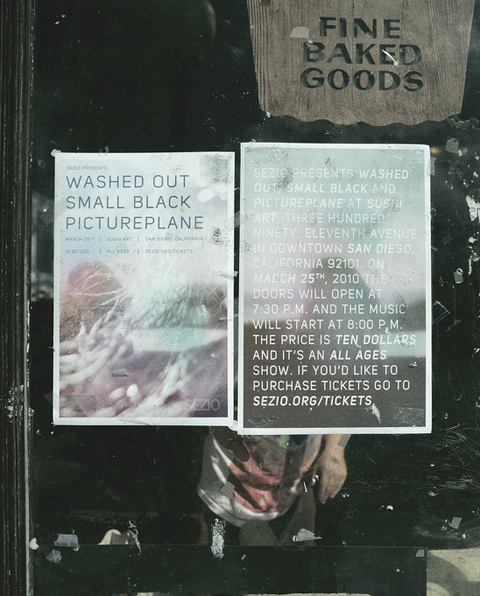 FINE
BAKED
GOODS
SEZIO PRESENTS
WASHED OUT
SMALL BLACK
PICTUREPLANE
MARCH 25TH | SUSHI ART | SAN DIEGO, CALIFORNIA
| ALL AGES | SEZIO.ORG/TICKETS
SEZIO
SEZIO PRESENTS WASHED
OUT, SMALL BLACK AND
PICTUREPLANE AT SUSHI
ART, THREE HUNDRED
NINETY, ELEVENTH AVENUE
IN DOWNTOWN SAN DIEGO,
CALIFORNIA 92101. ON
MARCH 25TH, 2010 THE
DOORS WILL OPEN AT
7:30 P.M. AND THE MUSIC
WILL START AT 8:00 P.M.
THE PRICE IS TEN DOLLARS
AND IT'S AN ALL AGES
SHOW. IF YOU'D LIKE TO
PURCHASE TICKETS GO TO
SEZIO.ORG/TICKETS